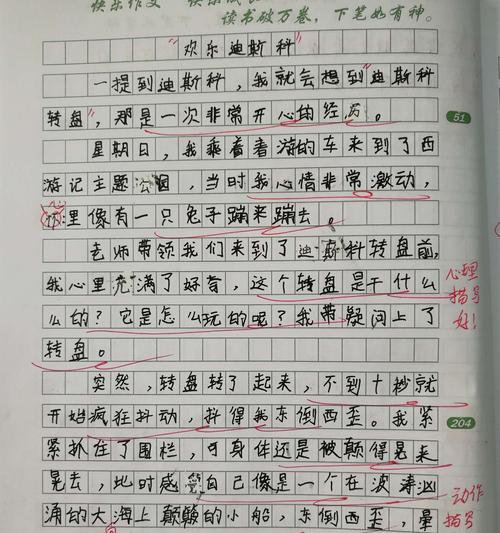 读书破万卷，下笔如有神。
“欢乐迪斯科”
一提到迪斯科，我就会想到“迪斯科
转盘”，那是一次非常开心的经历。
51
星期日，我乘着春游的车来到了西
游记主题公园，当时我心情非常激动，
里像有一只兔子蹦来蹦去。
老师带领我们来到了迪斯科转盘前，
我心里充满了好奇，这个转盘是干什么
么的？它是怎么玩的呢？我带疑问上了
心理
描写
好！
转盘。
突然，转盘转了起来，不到十秒就
开始疯狂抖动，抖得我东倒西歪。我紧
204
紧扒住了围栏，可身体还是被颠得晃来
晃去，此时感觉自己像是一个在波涛汹
涌的大海上颠颠的小船，东倒西歪，晕
动作
描写